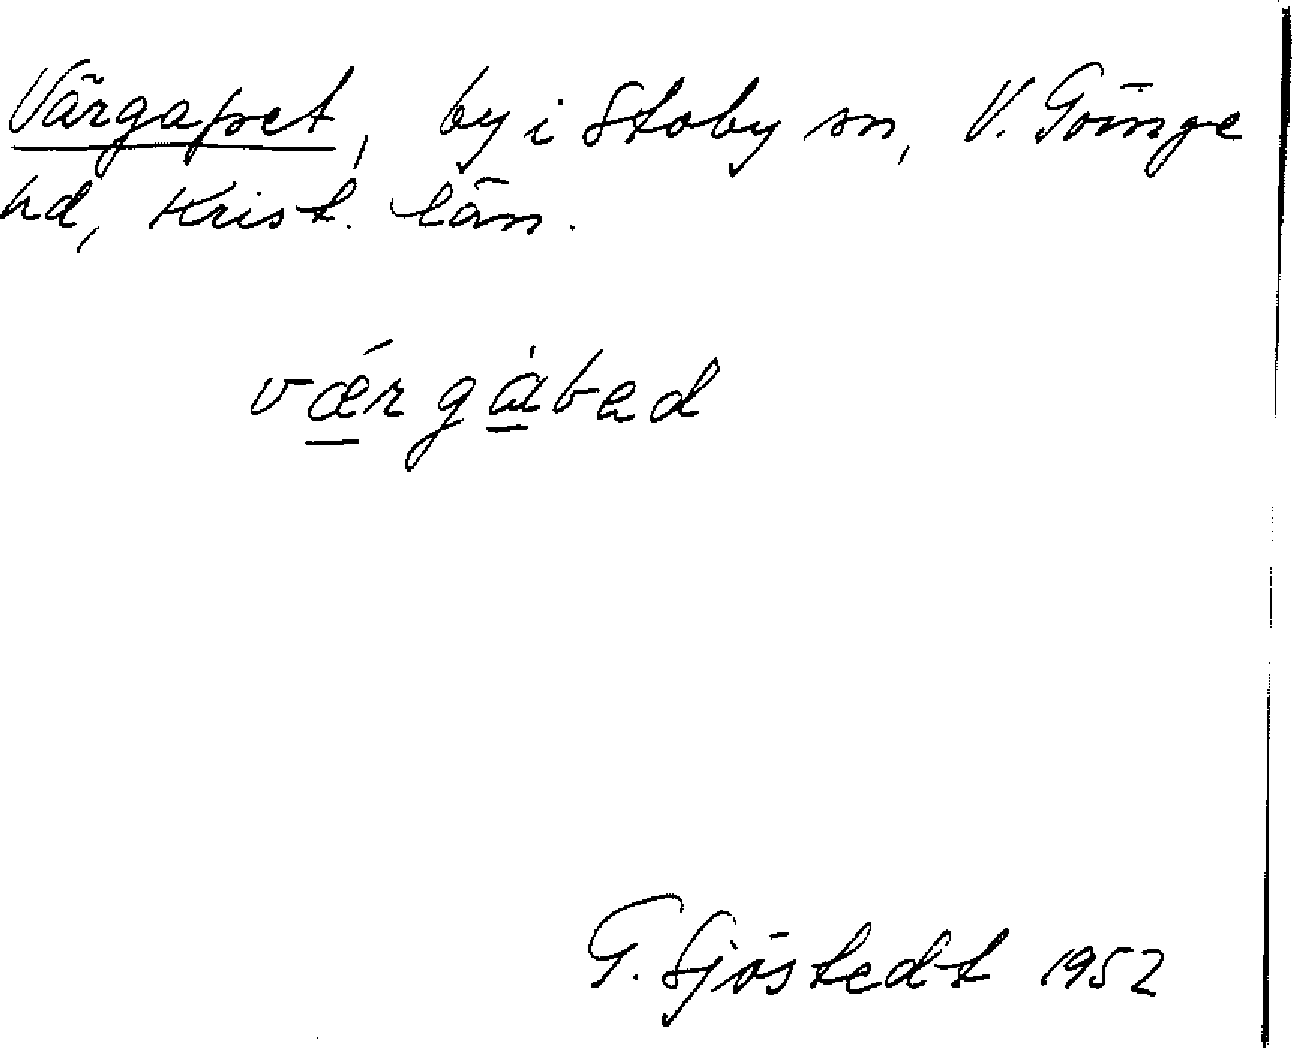 Värgapet, by i Stoby sn, V. Göinge
hd, Krist. län.
vǽrgàbad
G. Sjöstedt 1952